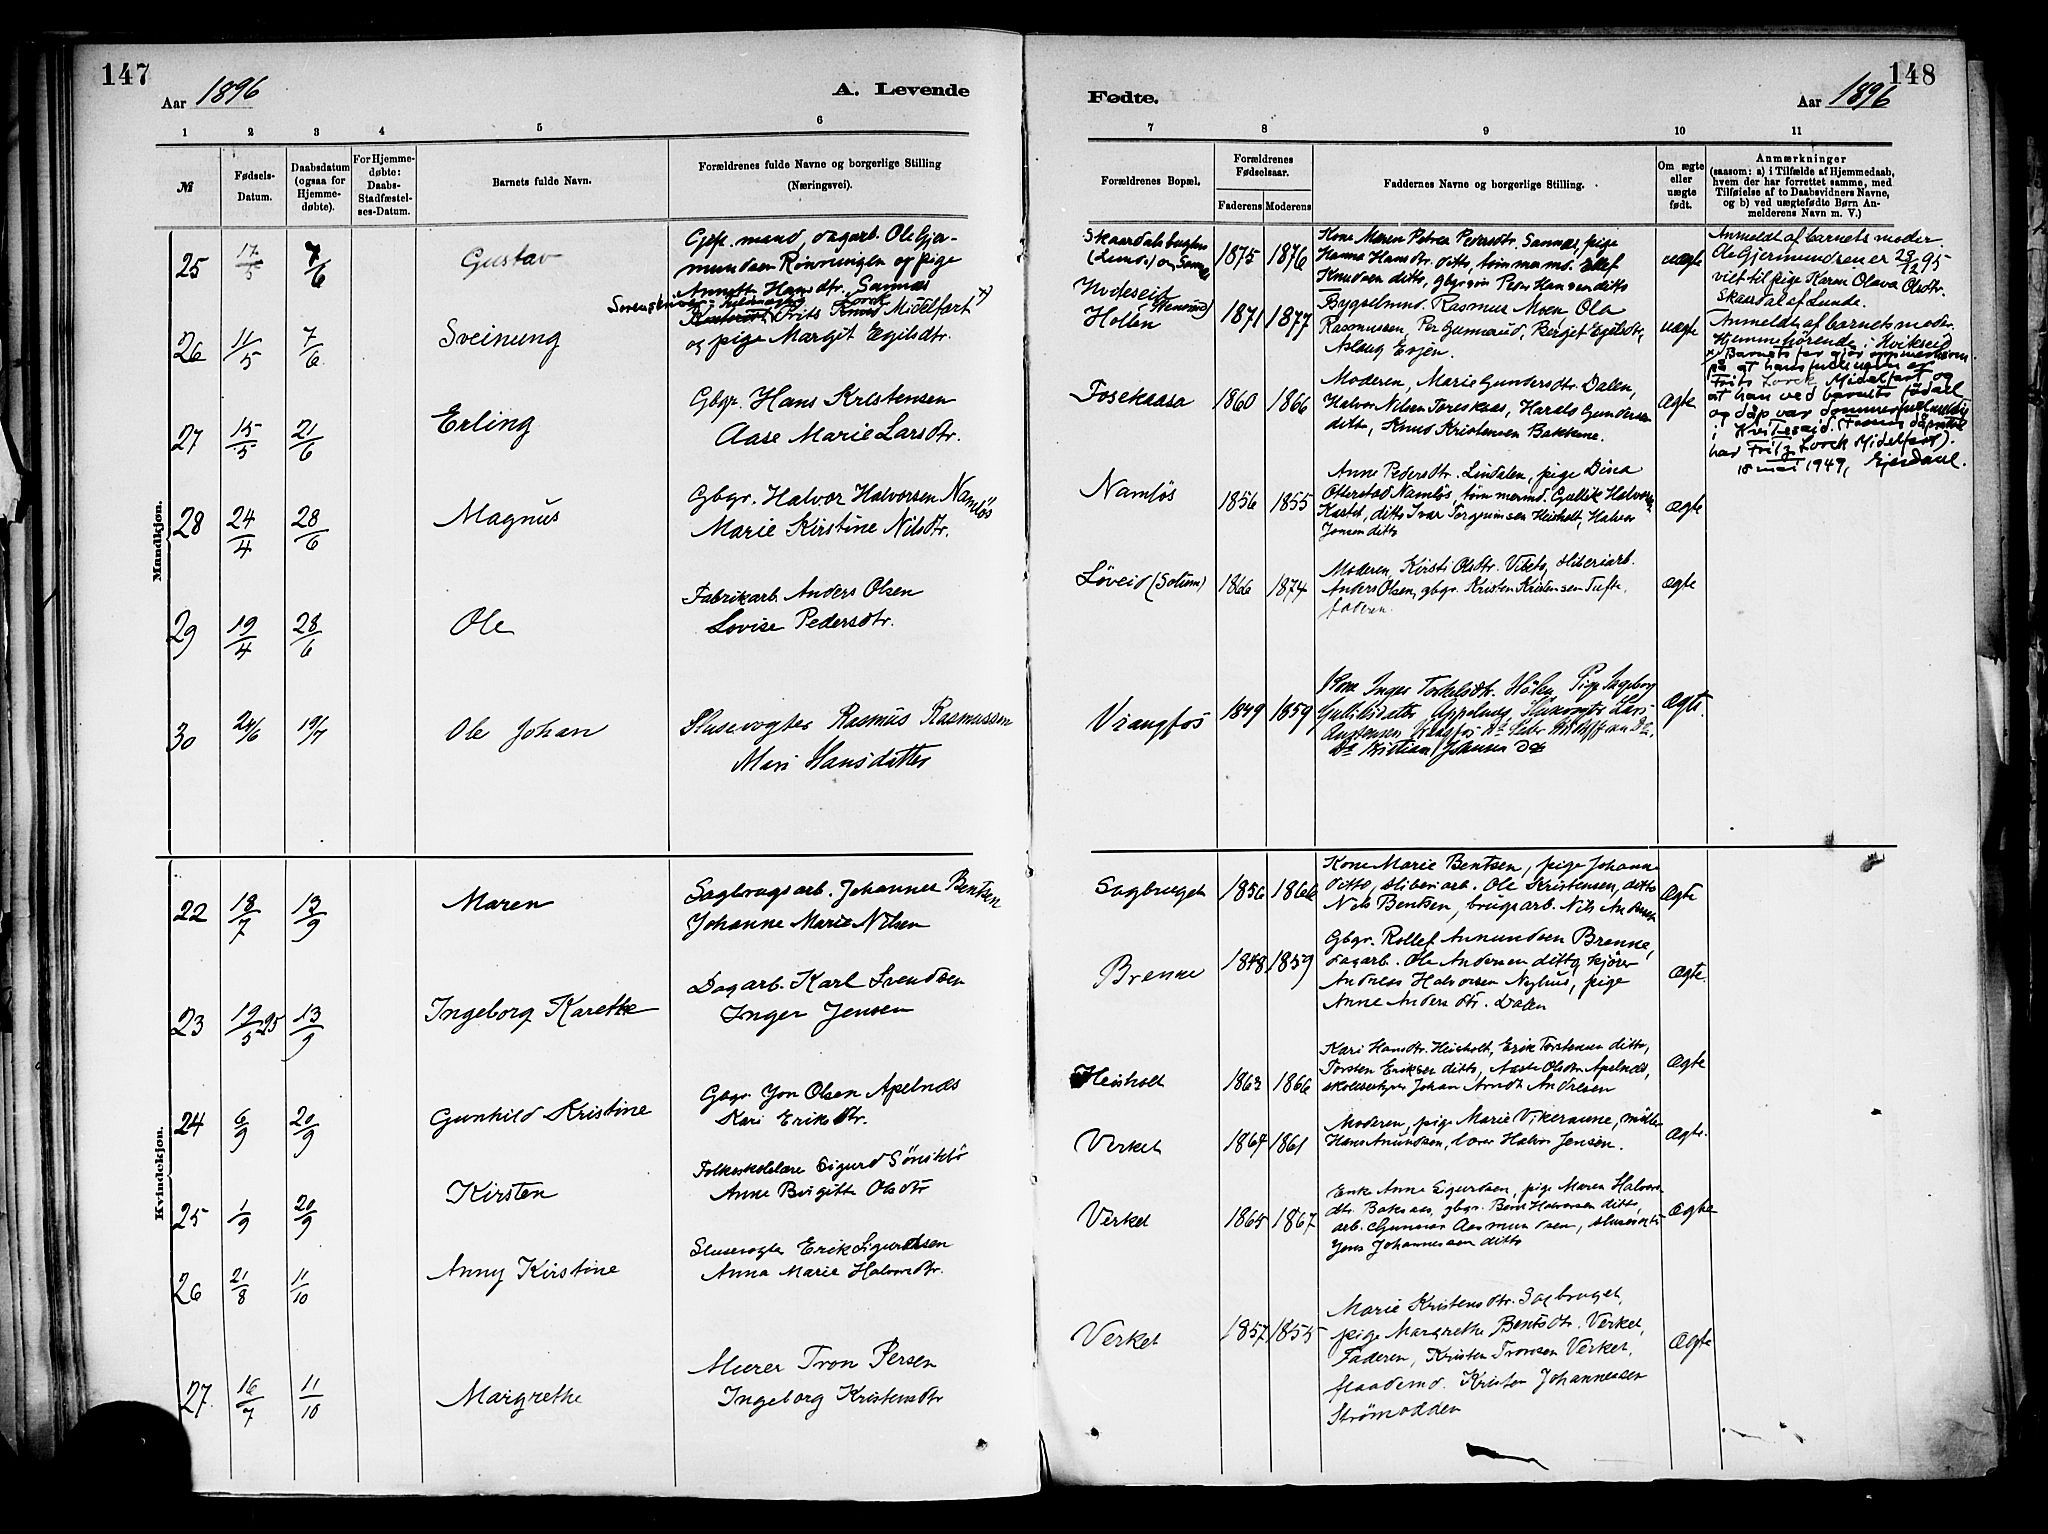 147
Aar 1896
A. Levende
1 2 3 4 5 6
№
Fødsels-
Datum.
Daabsdatum
(ogsaa for
Hjemme-
døbte).
For Hjemme-
døbte:
Daabs-
Stadfæstel-
ses-Datum.
Barnets fulde Navn.
Forældrenes fulde Navne og borgerlige Stilling
(Næringsvei).
Mandkjøn.
25 17/5 7/6 Gustav
Gift. mand, dagarb. Ole Gjer-
mundsen Rønningen og pige
Annette Hansdtr. Sannæs
26 11/5 7/6 Sveinung
Frits Lorck Midelfart x)
og pige Margit Egilsdtr.
27 15/5 21/6 Erling
Gbgr. Hans Kristensen
Aase Marie Larsdtr.
28 24/4 28/6 Magnus
Gbgr. Halvor Halvorsen Namløs
Marie Kirstine Nilsdtr.
29 19/4 28/6 Ole
Fabrikarb. Anders Olsen
Lovise Pedersdtr.
30 24/6 19/7 Ole Johan
Slusevogter Rasmus Rasmussen
Mari Hansdatter
Kvindekjøn.
22 18/7 13/9 Maren
Sagbrugsarb. Johannes Bentsen
Johanne Marie Nilsen
23 19/5 95 13/9 Ingeborg Karethe
Dagarb. Karl Svendsen
Inger Jensen
24 6/9 20/9 Gunhild Kristine
Gbgr. Jon Olsen Apelnæs
Kari Eriksdtr.
25 1/9 20/9 Kirsten
Folkeskolelære Sigurd
Anne Birgitte Olsdtr
26 21/8 11/10 Anny Kirstine
Slusevogter Erik Sigurdsen
Anna Marie Halvorsdtr.
27 16/7 11/10 Margrethe
Murer Tron Persen
Ingeborg Kristensdtr
148
Fødte.
Aar 1896
7 8 9 10 11
Forældrenes Bopæl.
Forældrenes
Fødselsaar.
Faderens Moderens
Faddernes Navne og borgerlige Stilling.
Om ægte
eller
uægte
født.
Anmærkninger
(saasom: a) i Tilfælde af Hjemmedaab,
hvem der har forrettet samme, med
Tilføielse af to Daabsvidners Navne,
og b) ved uægtefødte Børn An-
melderens Navn m. V.)
(Lunde) og
1875 1876
Kone Maren Petrea Pedersdtr. Sannæs, pige
Hanna Hansdtr. ditto, tømmermd. Ellef
Knudsen ditto, gbgrsøn Peder Hansen ditto
uægte
Anmeldt af barnets moder.
Ole Gjermundsen er 28/12 95
viet til pige Karen Olava Olsdtr.
Skaardal af Lunde.
Hvideseid
Holla
1871 1877
Bygselmnd. Rasmus Moen, Ola
Rasmussen, Per Gunnarud, Berget Egilsdtr,
Aslaug
uægte
Anmeldt af barnets moder.
Hjemmehørende i Kvikseid
x) Barnets far gjør oppmerksom
på at hans fulle navn er
Frits Lorck Midelfart og
at han ved barnets fødsel
og dåp var
i Kviteseid.
har Fritz Lorck Midelfart).
18 mai 1949,
1860 1866
Moderen, Marie Gundersdtr. Dalen,
Halvor Nilsen, Harald Gundersen
ditto, Knud Kristensen Bakkene.
ægte
Namløs
1856 1855
Anne Pedersdtr. Lindalen, pige Dina
Namløs, tømmermd. Gullik Halvorsen
ditto Ivar Torgrimsen Heisholt, Halvor
Jensen ditto
ægte
Løveid (Solum)
1866 1874
Moderen, Kirsti Olsdtr. Vibeto, sliberiarb.
Anders Olsen, gbgr. Kristen Kristensen Tufte,
faderen.
ægte
Vrangfos
1849 1859
Kone Inger Torkelsdtr., Pige Ingeborg
Gulliksdatter, Slusevogter Lars
Kristian Johansen Do
ægte.
Sagbruget
1856 1866
Kone Marie Bentsen, pige Johanne
ditto, sliberiarb. Ole Kristensen, ditto
Nils Bentsen, brugsarb. Nils Andersen
ægte
Brenne
1848 1859
Gbgr. Rollef Anundsen Brenne,
dagarb. Ole Andersen ditto, kjører
Andreas Halvorsen Nyhus, pige
Anne Andersdtr. Dalen
ægte.
Heisholt
1863 1866
Kari Hansdtr. Heisholt, Erik Torstensen ditto,
Torsten Eriksen ditto, Aaste Olsdtr. Apelnæs,
skolebestyrer Johan Arndt Andresen
ægte
Verket
1864 1861
Moderen, pige Marie Vikeraune, møller
Hans Anundsen, lærer Halvor Jensen.
ægte.
Verket
1865 1867
Enke Anne Sigurdsen, pige Maren Halvors-
dtr. Baksaas, gbgr. Bent Halvorsen ditto,
arb. Gunnar Aasmundsen, slusevogter
Jens Johannessen ditto
ægte
Verket
1857 1855
Marie Kristensdtr. Sagbruget,
pige Margrethe Bentsdtr. Verket,
Faderen, Kristen Tronsen Verket,
flaademd. Kristen Johannessen
Strømodden
ægte